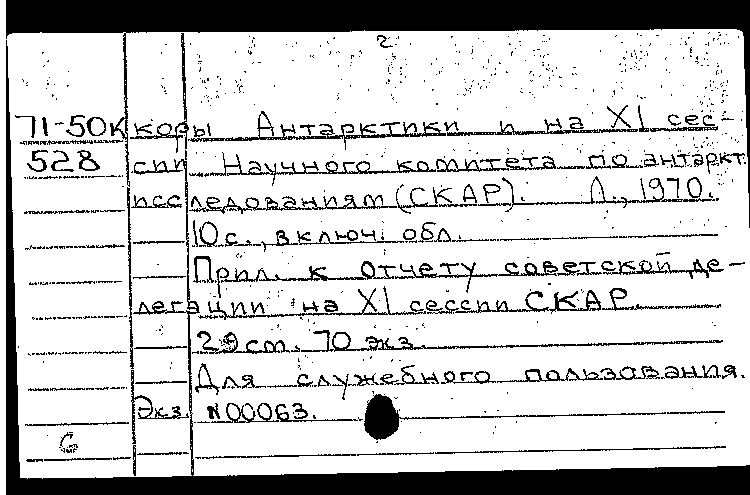 2
71-50К коры Антарктики и на XI сес-
528 сии Научного комитета по антаркт.
исследованиям (СКАР). Л., 1970.
10 с., включ. обл.
Прил. к отчету советской де-
легации на XI сессии СКАР.
29 см. 70 экз.
Для служебного пользования.
Экз. N00063.
G